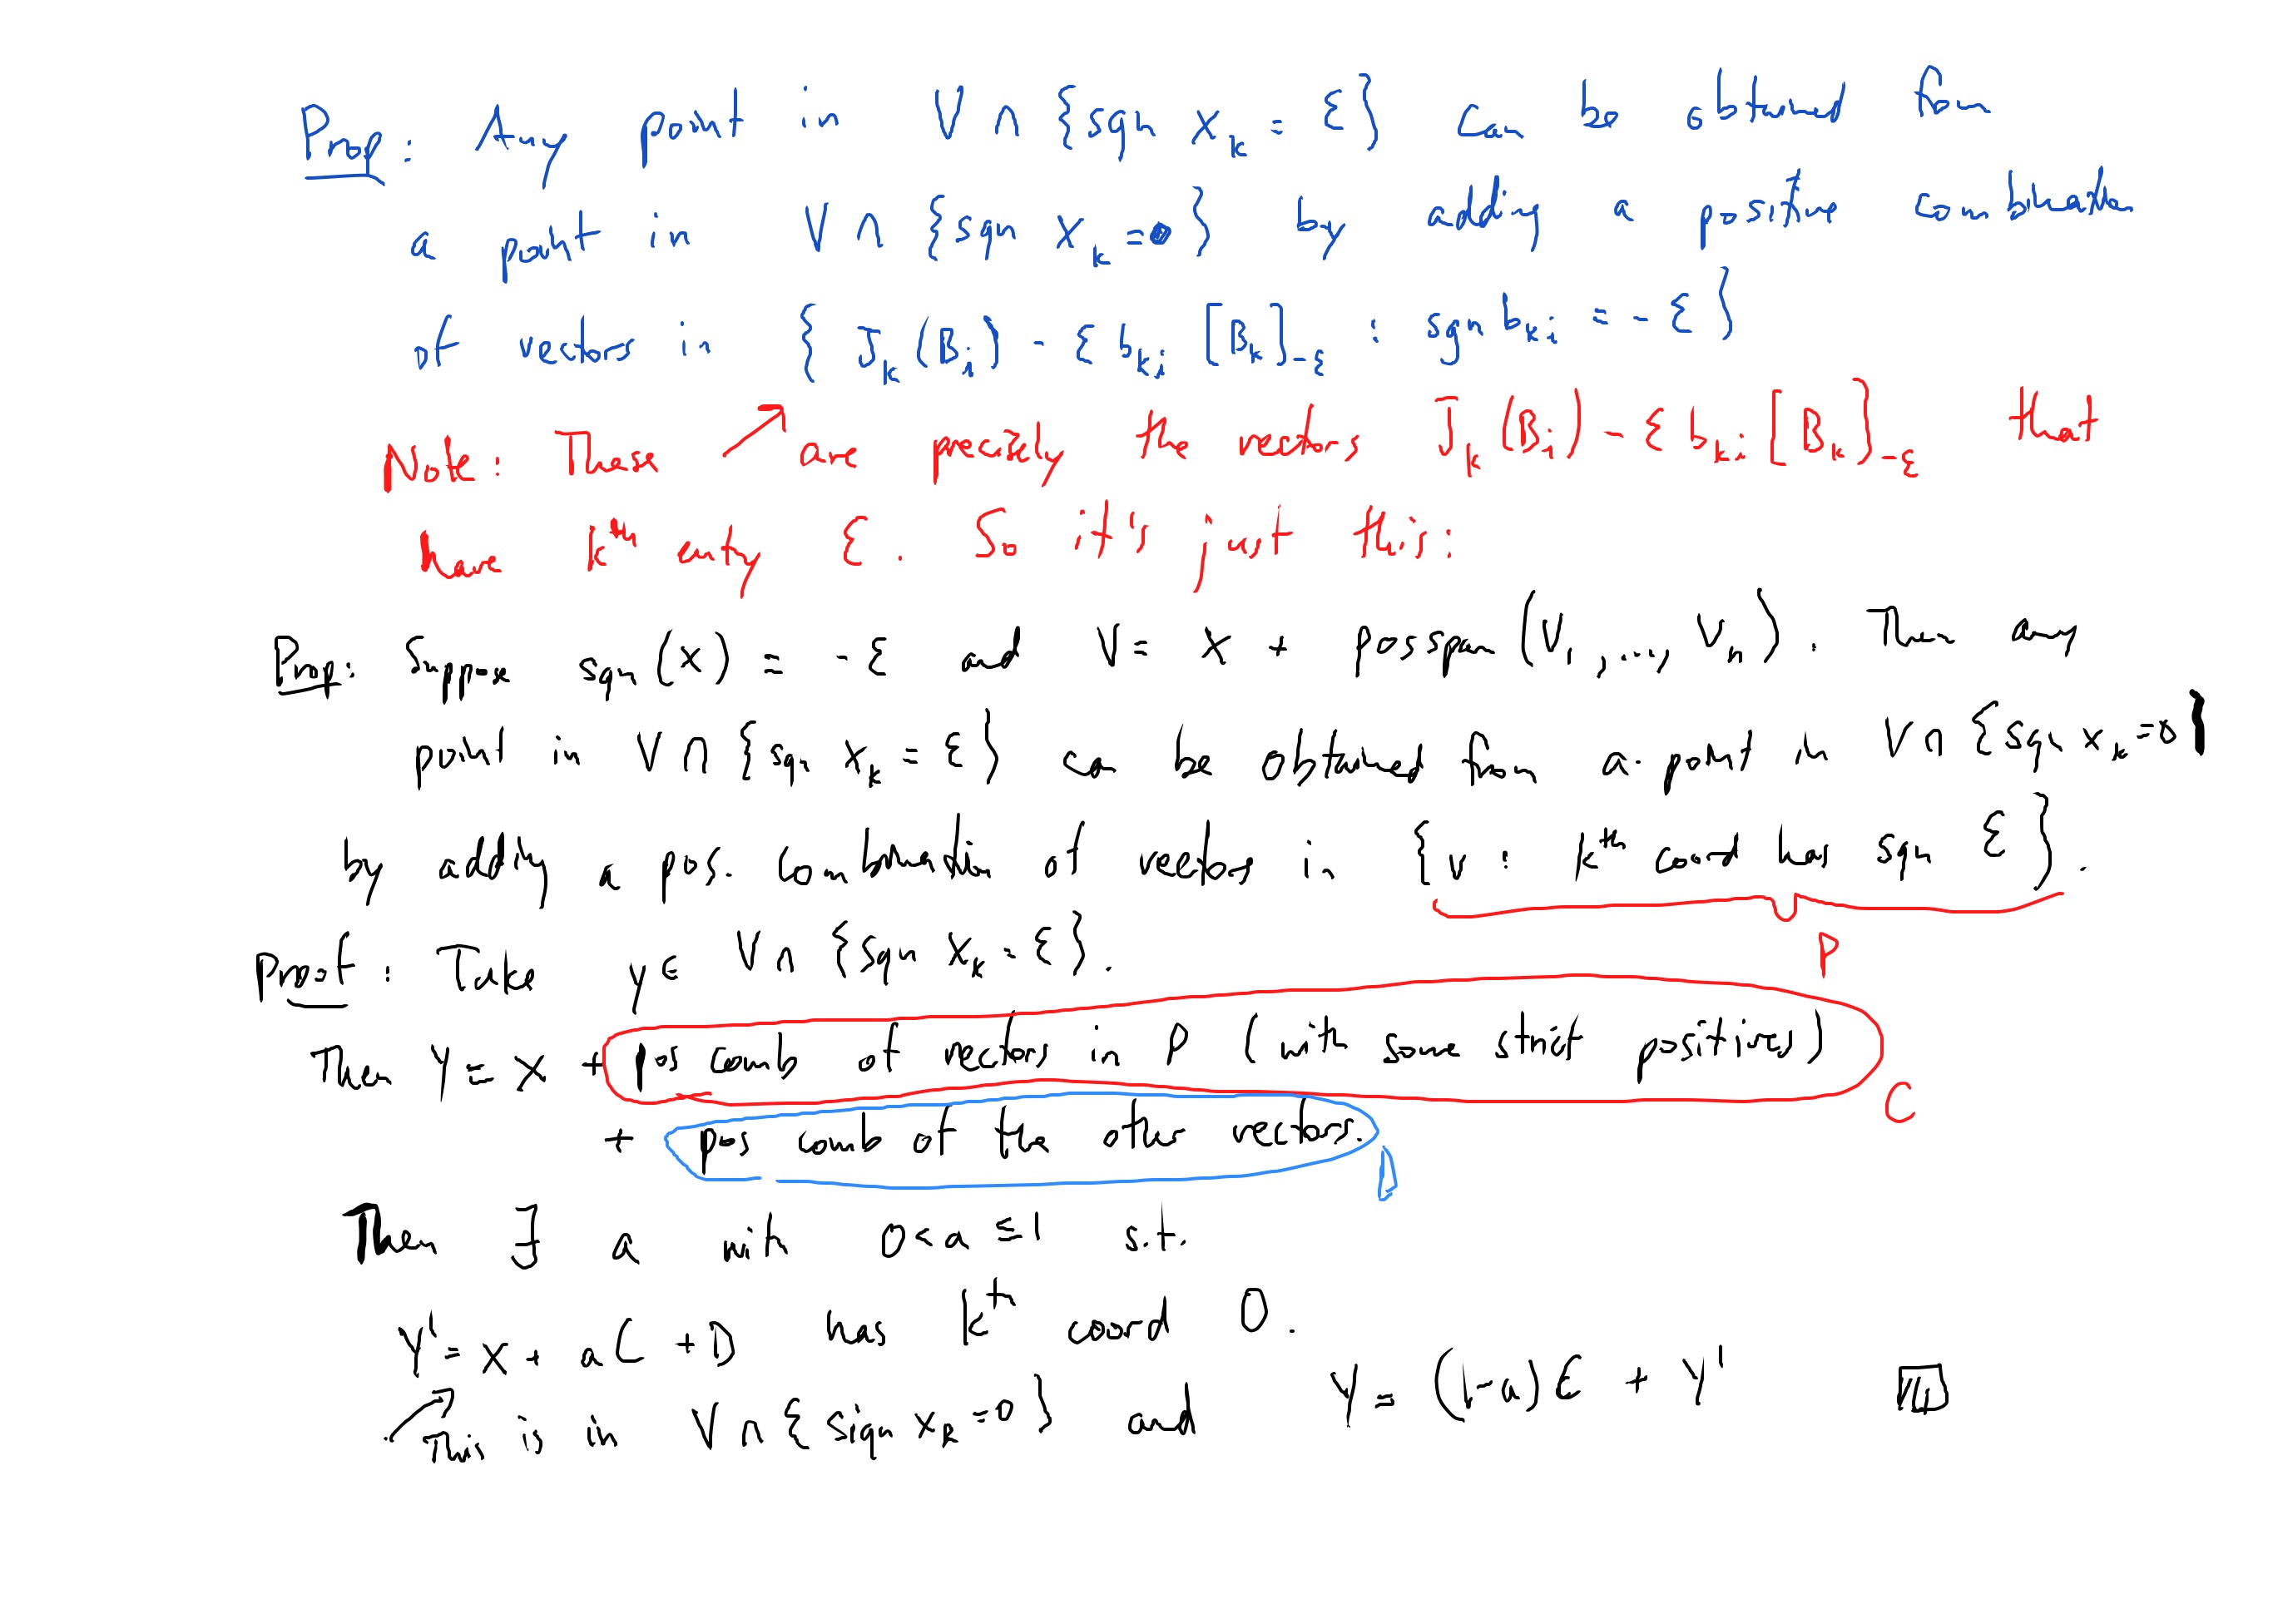 Prop: Any point in V ∩ {sgn x_k = ε} can be obtained from
a point in V ∩ {sgn x_k = 0} by adding a positive combination
of vectors in { J_k(B_i) - ε b_ki [B_k]_-ε : sgn b_ki = -ε }
Note: These ↗ are precisely the vectors J_k(B_i) - ε b_ki [B_k]_-ε that
have kth entry ε. So it's just this:
Prop: Suppose sgn(x) = -ε and V = x + posspan(V_1, ..., V_n). Then any
point in V ∩ {sgn x_k = ε} can be obtained from a point in V ∩ {sgn x_k = 0}
by adding a pos. combination of vectors in {v : kth coord has sgn ε}.
P
Proof: Take y ∈ V ∩ {sgn x_k = ε}.
Then y = x + pos comb of vectors in P (with some strict positives)
C
+ pos comb of the other vectors.
D
Then ∃ a with 0 < a ≤ 1 s.t.
y' = x + aC + D has kth coord 0.
↗ This is in V ∩ {sign x_k = 0} and y = (1-a)C + y'